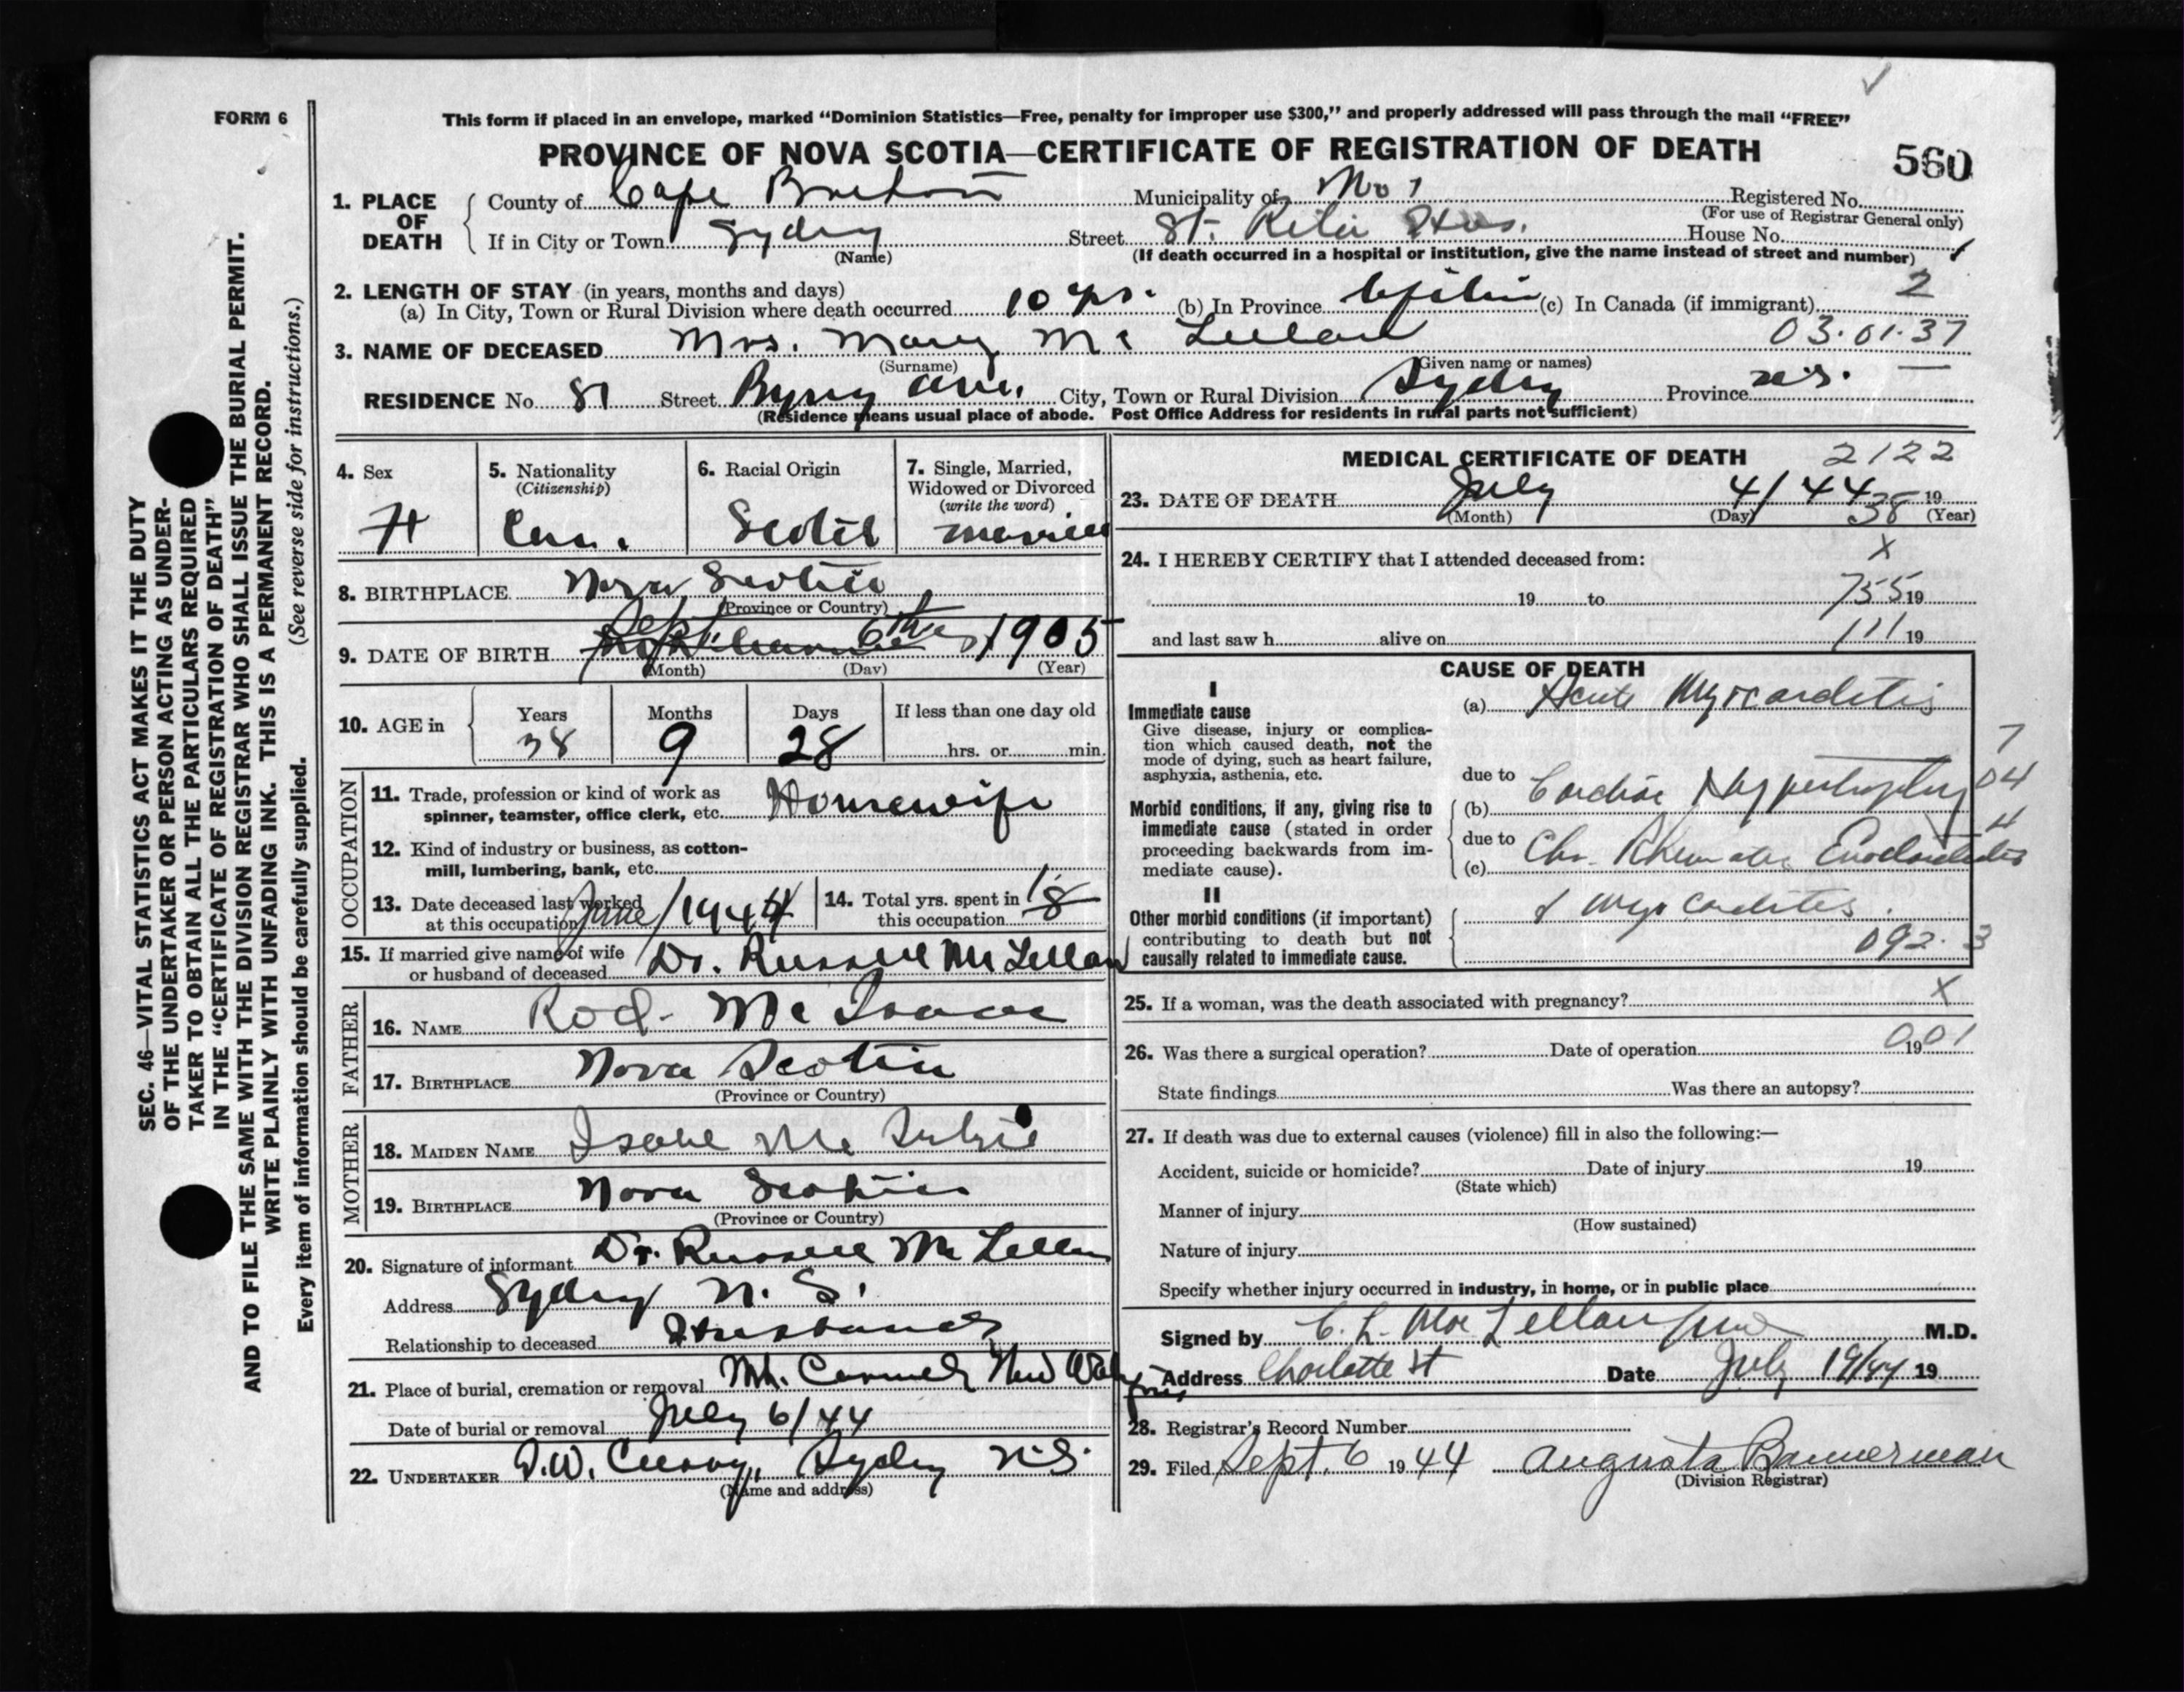 FORM 6
This form if placed in an envelope, marked “Dominion Statistics—Free, penalty for improper use $300,” and properly addressed will pass through the mail “FREE”
PROVINCE OF NOVA SCOTIA—CERTIFICATE OF REGISTRATION OF DEATH
560
1. PLACE OF DEATH
County of Cape Breton Municipality of No 1 Registered No.
(For use of Registrar General only)
If in City or Town Sydney Street St. Rita Hos. House No.
(Name) (If death occurred in a hospital or institution, give the name instead of street and number) 1
2. LENGTH OF STAY (in years, months and days) 2
(a) In City, Town or Rural Division where death occurred 10 yrs. (b) In Province (c) In Canada (if immigrant)
3. NAME OF DECEASED Mrs. Mary Mc Lellan 03.01.37
(Surname) (Given name or names)
RESIDENCE No. 81 Street Byng Ave. City, Town or Rural Division Sydney Province N.S.
(Residence means usual place of abode. Post Office Address for residents in rural parts not sufficient)
4. Sex F
5. Nationality (Citizenship) Can.
6. Racial Origin Scotch
7. Single, Married, Widowed or Divorced (write the word) married
8. BIRTHPLACE Nova Scotia
(Province or Country)
9. DATE OF BIRTH Sept. 6th 1905
(Month) (Day) (Year)
10. AGE in Years 38 Months 9 Days 28 If less than one day old
hrs. or min.
OCCUPATION
11. Trade, profession or kind of work as spinner, teamster, office clerk, etc. Housewife
12. Kind of industry or business, as cotton-mill, lumbering, bank, etc.
13. Date deceased last worked at this occupation June/1944
14. Total yrs. spent in this occupation 18
15. If married give name of wife or husband of deceased Dr. Russell McLellan
FATHER
16. NAME Rod. Mc Isaac
17. BIRTHPLACE Nova Scotia
(Province or Country)
MOTHER
18. MAIDEN NAME Isabel Mc
19. BIRTHPLACE Nova Scotia
(Province or Country)
20. Signature of informant Dr. Russell McLellan
Address Sydney N. S.
Relationship to deceased Husband
21. Place of burial, cremation or removal Mt. Carmel, New Waterford
Date of burial or removal July 6/44
22. UNDERTAKER D.W. Curry, Sydney N.S.
(Name and address)
MEDICAL CERTIFICATE OF DEATH 2122
23. DATE OF DEATH July 4/44 19
(Month) (Day) 38 (Year)
24. I HEREBY CERTIFY that I attended deceased from: X
19 to 755 19
and last saw h alive on 111 19
CAUSE OF DEATH
I
Immediate cause
Give disease, injury or complication which caused death, not the mode of dying, such as heart failure, asphyxia, asthenia, etc.
(a) Acute Myocarditis
7
due to
Morbid conditions, if any, giving rise to immediate cause (stated in order proceeding backwards from immediate cause).
(b) Cardiac Hypertrophy 04
4
due to
(c) Chr. Rheumatic Endocarditis
II
Other morbid conditions (if important) contributing to death but not causally related to immediate cause.
& Myocarditis.
092.3
25. If a woman, was the death associated with pregnancy? X
26. Was there a surgical operation? Date of operation 19 001
State findings Was there an autopsy?
27. If death was due to external causes (violence) fill in also the following:—
Accident, suicide or homicide? Date of injury 19
(State which)
Manner of injury
(How sustained)
Nature of injury
Specify whether injury occurred in industry, in home, or in public place
Signed by C. L. MacLellan M.D.
Address Charlotte St Date July 19/44 19
28. Registrar's Record Number
29. Filed Sept. 6 1944 Augusta Bannerman
(Division Registrar)
SEC. 46—VITAL STATISTICS ACT MAKES IT THE DUTY
OF THE UNDERTAKER OR PERSON ACTING AS UNDER-
TAKER TO OBTAIN ALL THE PARTICULARS REQUIRED
IN THE “CERTIFICATE OF REGISTRATION OF DEATH”
AND TO FILE THE SAME WITH THE DIVISION REGISTRAR WHO SHALL ISSUE THE BURIAL PERMIT.
WRITE PLAINLY WITH UNFADING INK. THIS IS A PERMANENT RECORD.
Every item of information should be carefully supplied. (See reverse side for instructions.)